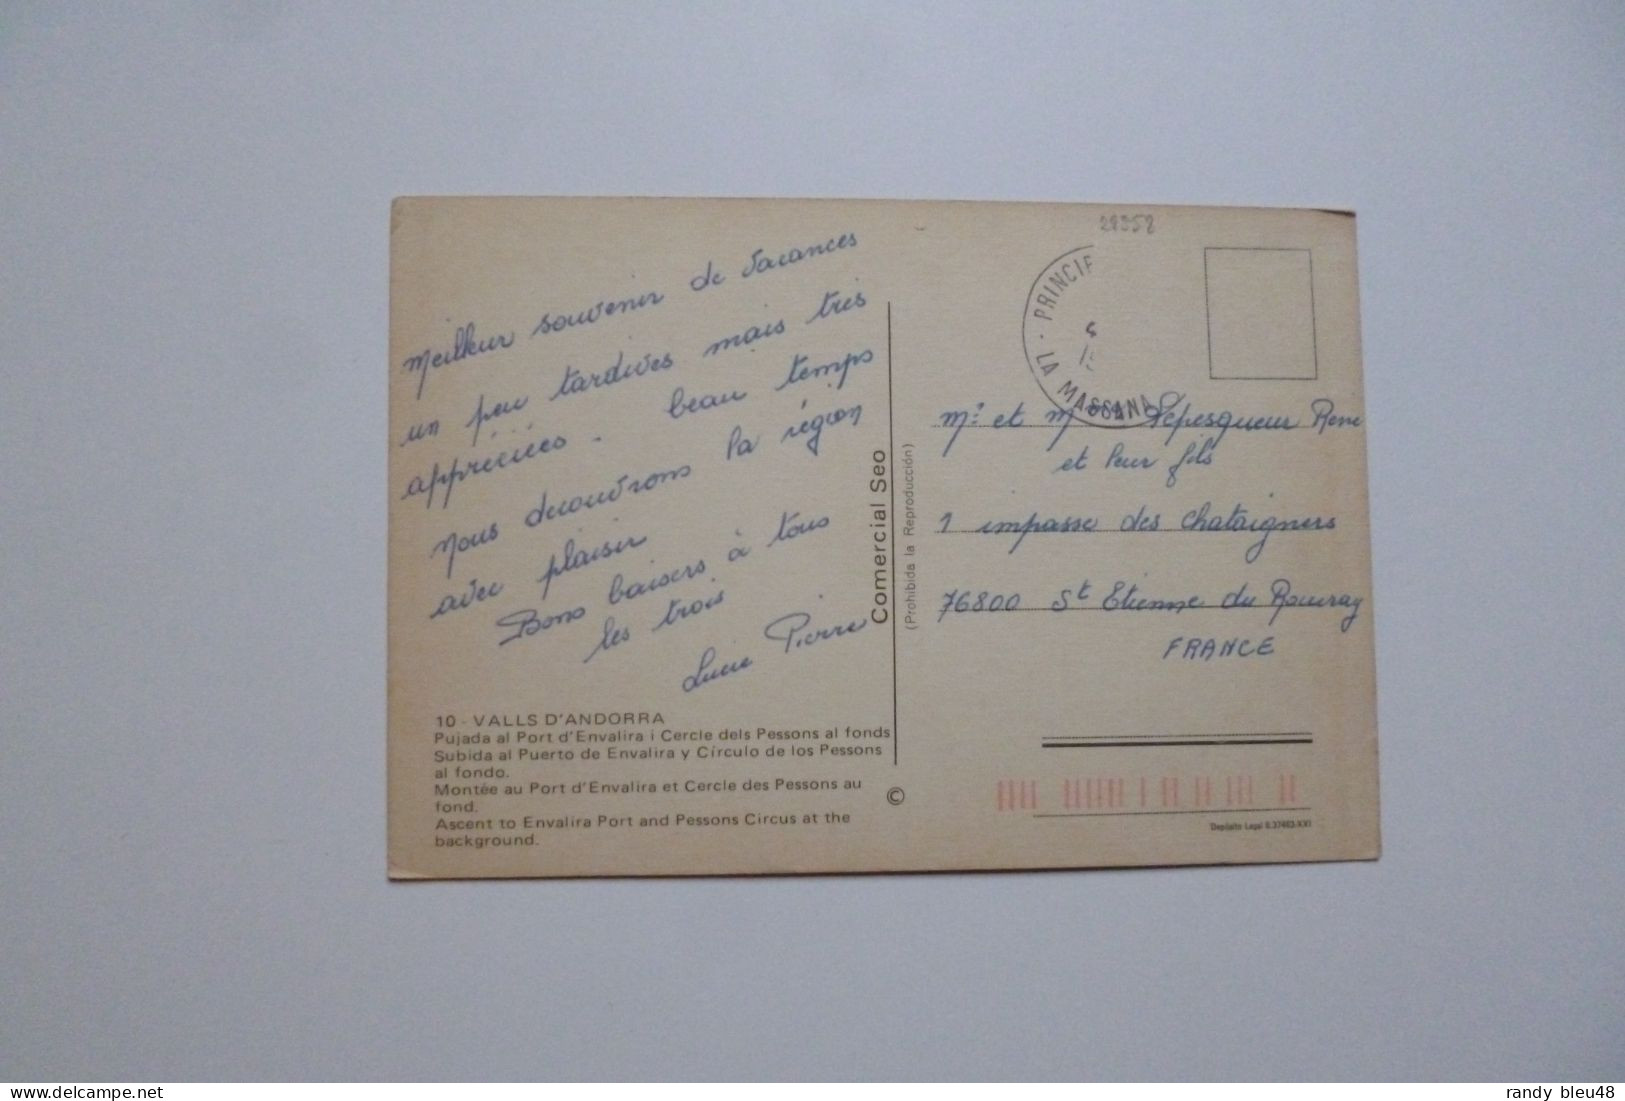 meilleur souvenir de vacances
un peu tardives mais très
appréciées. beau temps
nous decouvrons la région
avec plaisir
Bons baisers à tous
les trois
Lucie Pierre
10 - VALLS D'ANDORRA
Pujada al Port d'Envalira i Cercle dels Pessons al fonds
Subida al Puerto de Envalira y Círculo de los Pessons
al fondo.
Montée au Port d'Envalira et Cercle des Pessons au
fond.
Ascent to Envalira Port and Pessons Circus at the
background.
Comercial Seo
(Prohibida la Reproducción)
©
28958
LA MASSANA · PRINCIP
Mr et Mme Lepesqueur Rene
et leur fils
1 impasse des chataigners
76800 St Etienne du Rouvray
FRANCE
Depósito Legal B.37463-XXI
randy bleu48